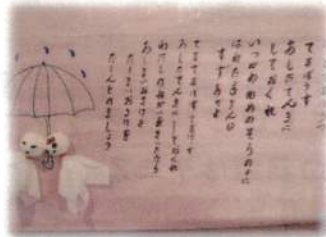 てるぼうず
あしたてんきに
しておくれ
いつかのゆめのそらのように
はれたらきんの
すずあげよ
てるてるぼうずてるぼうず
あしたてんきにしておくれ
わたしのねがいをきいたなら
あまいおさけを
たーんとのましょう